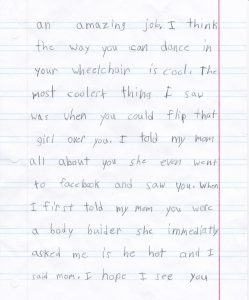 an amazing job. I think
the way you can dance in
your wheelchair is cool. The
most coolest thing I saw
was when you could flip that
girl over you. I told my mom
all about you she even went
to facebook and saw you. When
I first told my mom you were
a body buider she immediatly
asked me is he hot and I
said mom. I hope I see you